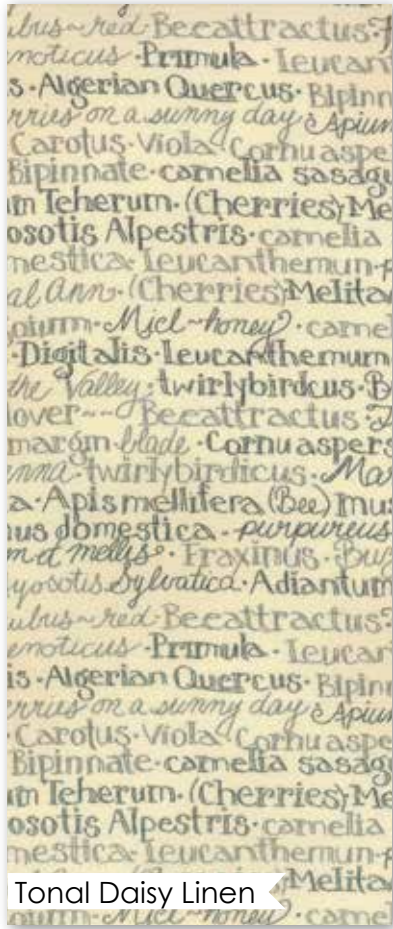 ubus~red Beeattractus:
enoticus · Primula · Leucan
s · Algerian Quercus · Bipinn
rries on a sunny day & Apium
Carotus · Viola Cornu aspe
Bipinnate · camelia sasaqu
m Teherum · (Cherries) Me
osotis Alpestris · camelia
mestica · Leucanthemum ·
al Ann · (Cherries) Melita
pium · Miel~honey · camel
· Digitalis · Leucanthemum
the Valley · twirlybirdcus · B
lover~~ Beeattractus :
margin blade · Cornu aspers
enna · twirlybirdicus · Mar
a · Apis mellifera (Bee) mus
us domestica · purpureus
m et mellis · Fraxinus · Bug
yosotis Sylvatica · Adiantum
ubus~red Beeattractus:
enoticus · Primula · Leucan
is · Algerian Quercus · Bipinn
erries on a sunny day & Apium
· Carotus · Viola Cornu aspe
Bipinnate · camelia sasaqu
m Teherum · (Cherries) Me
osotis Alpestris · camelia
mestica · Leucanthemum ·
Melita
Tonal Daisy Linen
pium · Miel~honey · camel